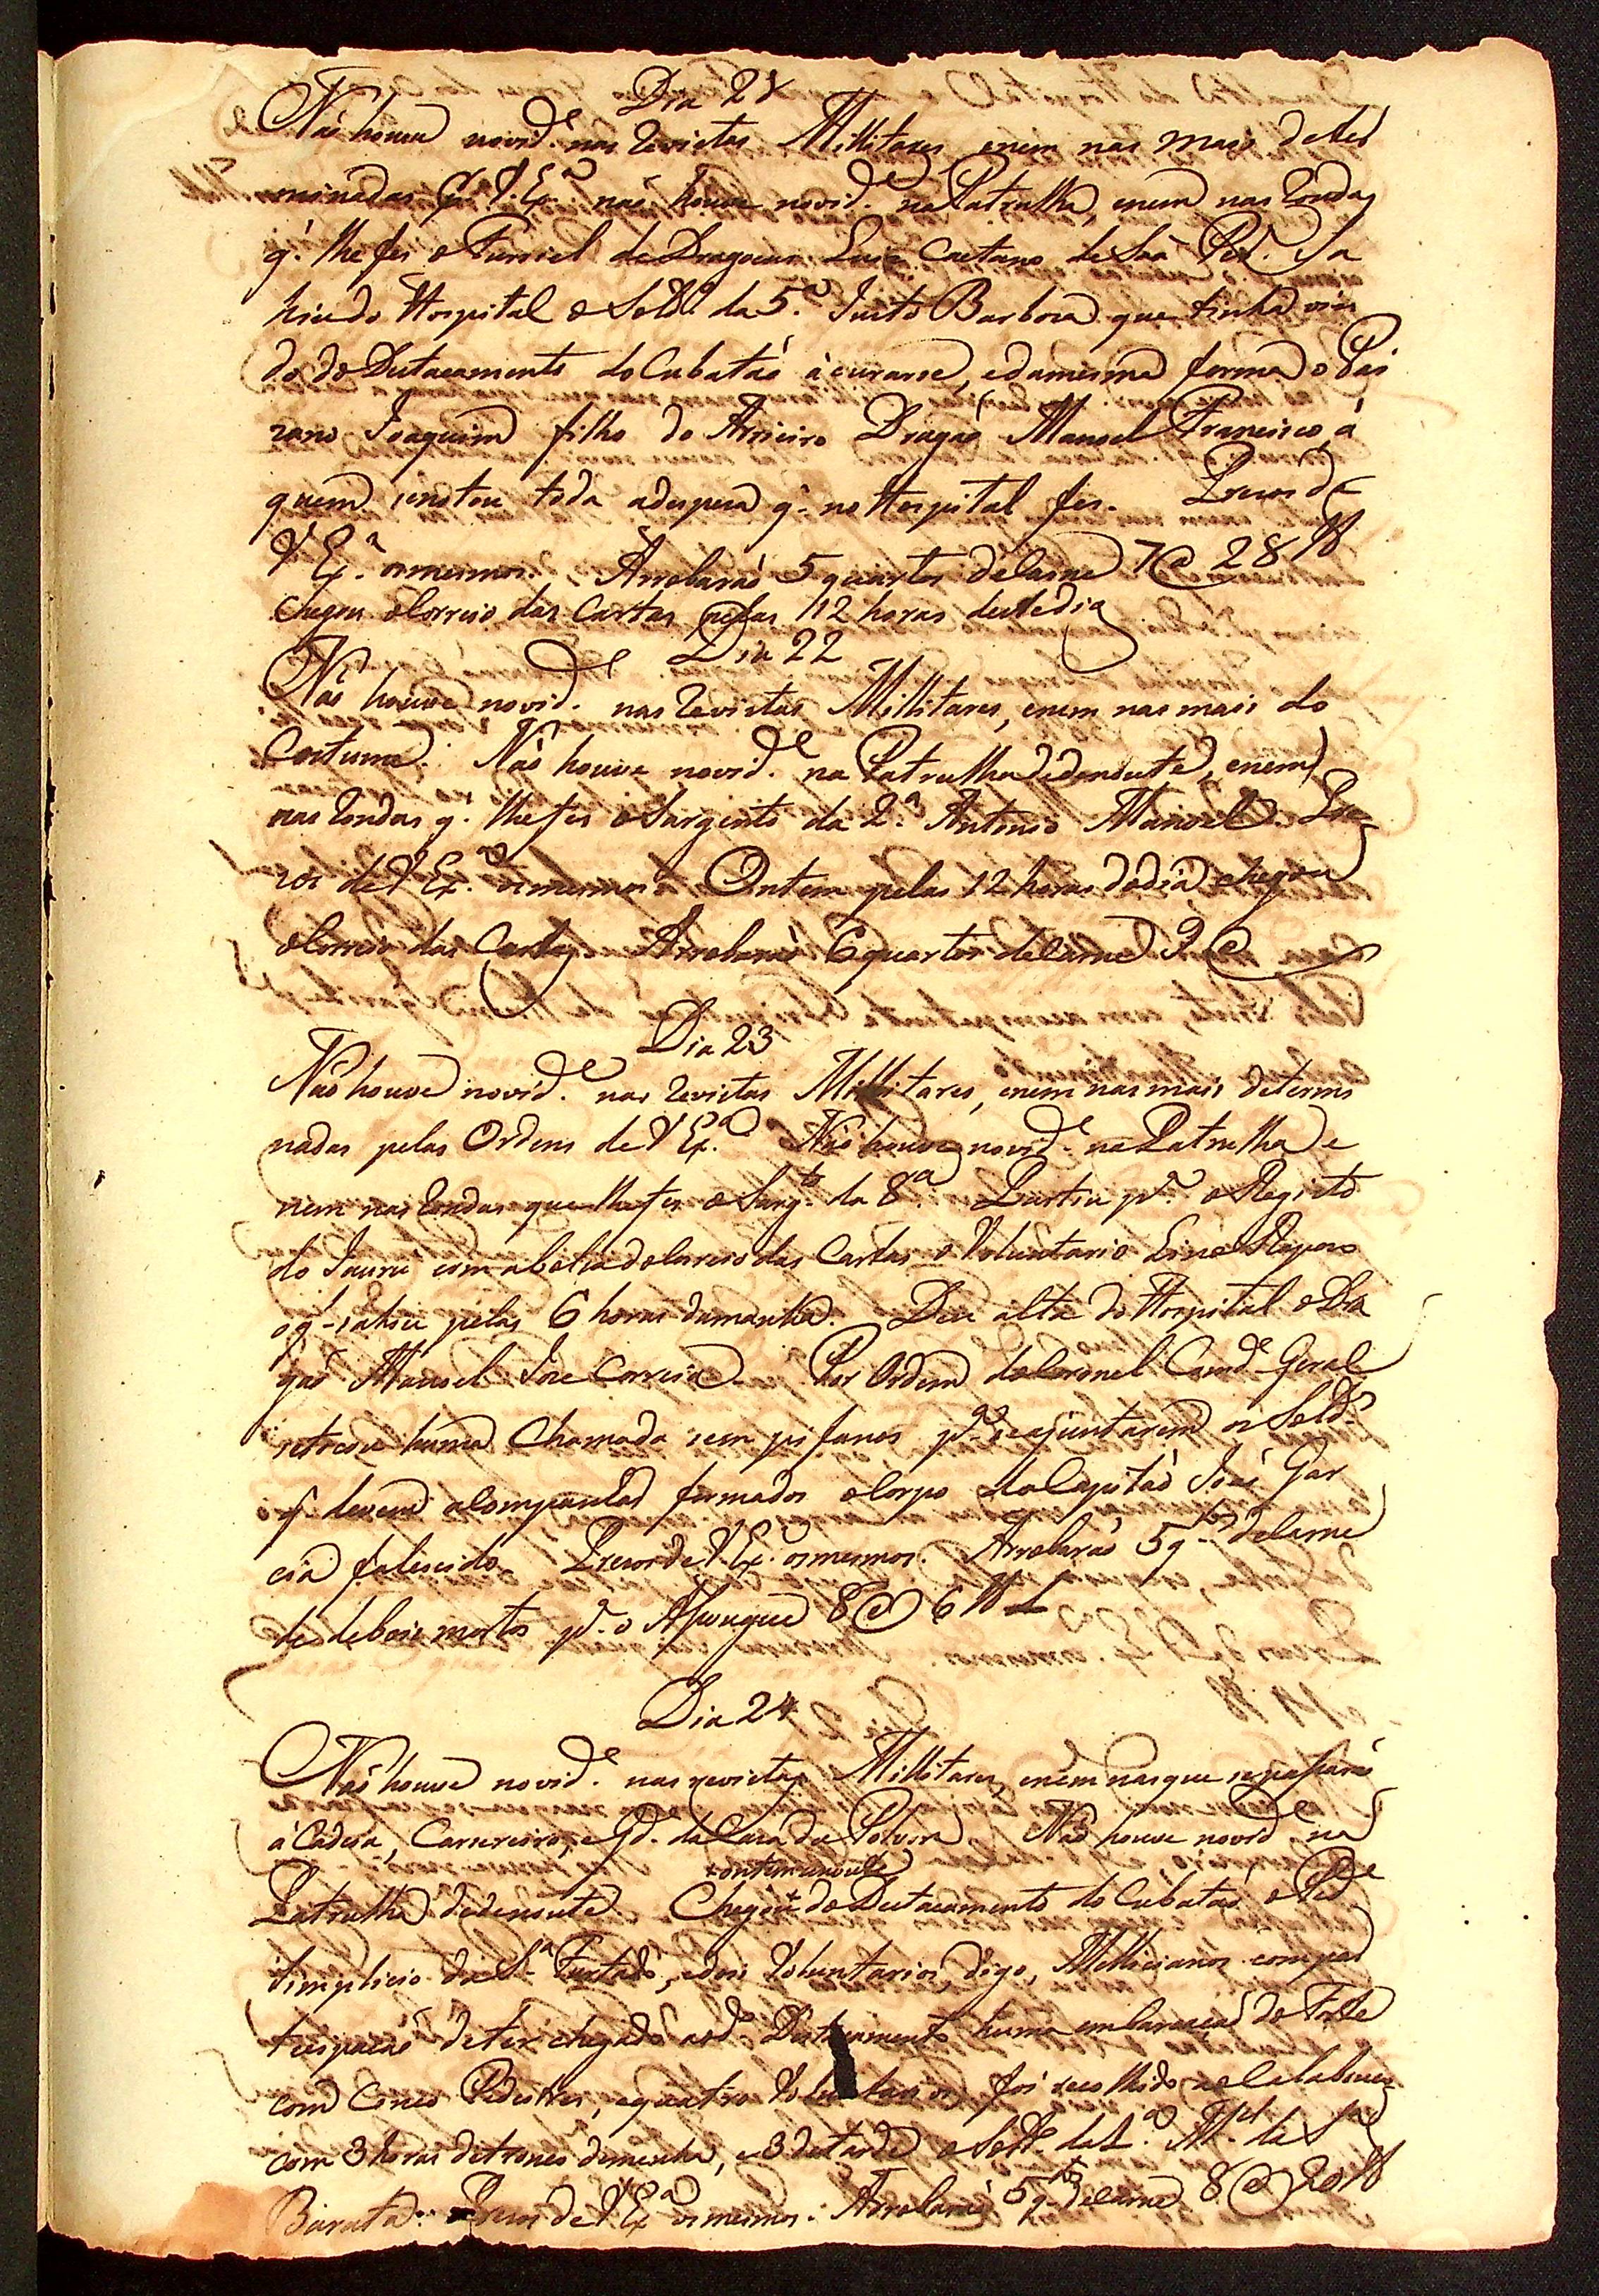 Dia 21
Não houve novid.e nas Revistas Millitares, enem nas mais deter
minadas p.r V.Ex.a não houve novid.e na Patrulha, enem nas Rondas
q.' lhe fes o Furriel de Dragoens Luis Caetano de Saâ Ped. Sa
hiu do Hospital o Sold.o da 5.a Justo Barbosa que tinha vin
do do Destacamento do Cubatão à curarse, edamesma forma o Pai
zano Joaquim filho do Arrieiro Dragaõ Manoel Francisco, á
quem contou toda adespesa q.' no Hospital fes. Prezos d
V Ex.a osmesmos. Arrobaraõ 5 quartos deCarne 7@ 28 lb
Chegou oCorreio das Cartas pelas 12 horas destedia
Dia 22
Não houve novid.e nas Revistas Millitares, enem nas mais do
Costume. Não houve novid.e na Patrulha dedenoute, enem
nas Rondas q.' lhefes oSargento da 2.a Antonio Manoel. Pre
zos deV Ex.a osmesmos. Ontem pelas 12 horas dodia chegou
oCorreio das Cartas. Arrobaraõ 6 quartos deCarne 9 @
Dia 23
Não houve novid.e nas Revistas Millitares, enem nas mais determi
nadas pelas Ordens deV Ex.a Não houve novid.e na Patrulha e
nem nas Rondas que lhefes o Sarg.to da 8.a Partiu p.a o Registo
do Jauru com abolsa doCorreio das Cartas o Voluntario Lino Rapozo
oq.' sahiu pelas 6 horas damanhã. Deu alta do Hospital o Dra
gaõ Manoel Joze Correia. Por Ordem doCoronel Comd.e Geral
setocou huma Chamada sem pifanos p.a seajuntarem os Sold.os
q' devem acompanhar formados oCorpo doCapitaõ José Gar
cia falescido. Prezos deV.Ex.a osmesmos. Arrobaraõ 5 q.tos deCarne
de debois mortos p.a o Asougue 8@ 6 lb
Dia 24
Não houve novid.e nas revistas Millitares, enem nasque sepasaraõ
à Cadeia, Carcereiro, e G.da da Caza da Polvora. Não houve novid.e na
ontemanoute
Patrulha dedenoute. Chegou do Destacamento do Cubataõ o Ped.e
Simplicio da S.a Furtado, edois Voluntarios, digo, Millicianos comper
tecipacaõ deter chegado aod.o Destacamento huma embarcaçaõ do Forte
com Cinco Pedestres, equatro Voluntarios. foi recolhido aoCalabouço
com 3 horas detronco demanhã, e3 detarde o Sold.o da 1.a M.el de Sa
Barata. Prezos deV Ex.a osmesmos. Arrobaraõ 5 q.tos deCarne 8@ 20 lb